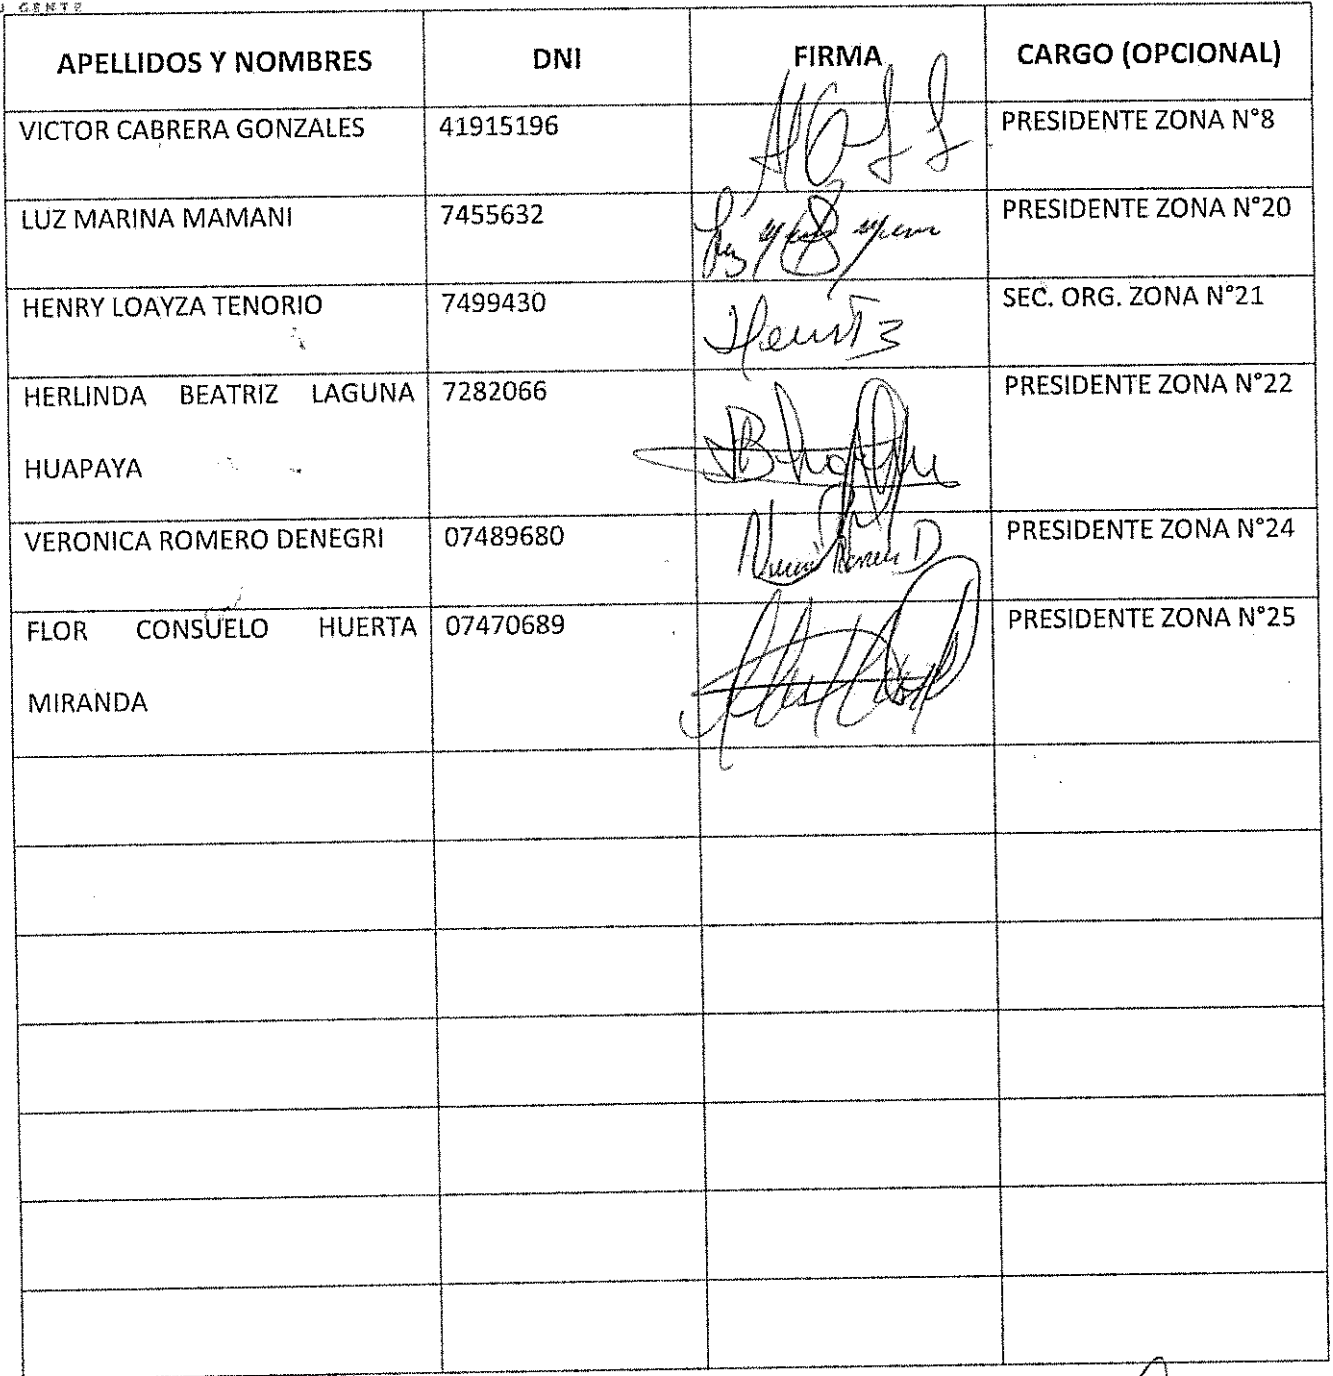 U GENTE
APELLIDOS Y NOMBRES DNI FIRMA CARGO (OPCIONAL)
VICTOR CABRERA GONZALES 41915196 PRESIDENTE ZONA N°8
LUZ MARINA MAMANI 7455632 PRESIDENTE ZONA N°20
HENRY LOAYZA TENORIO 7499430 SEC. ORG. ZONA N°21
HERLINDA BEATRIZ LAGUNA 7282066 PRESIDENTE ZONA N°22
HUAPAYA
VERONICA ROMERO DENEGRI 07489680 PRESIDENTE ZONA N°24
FLOR CONSUELO HUERTA 07470689 PRESIDENTE ZONA N°25
MIRANDA